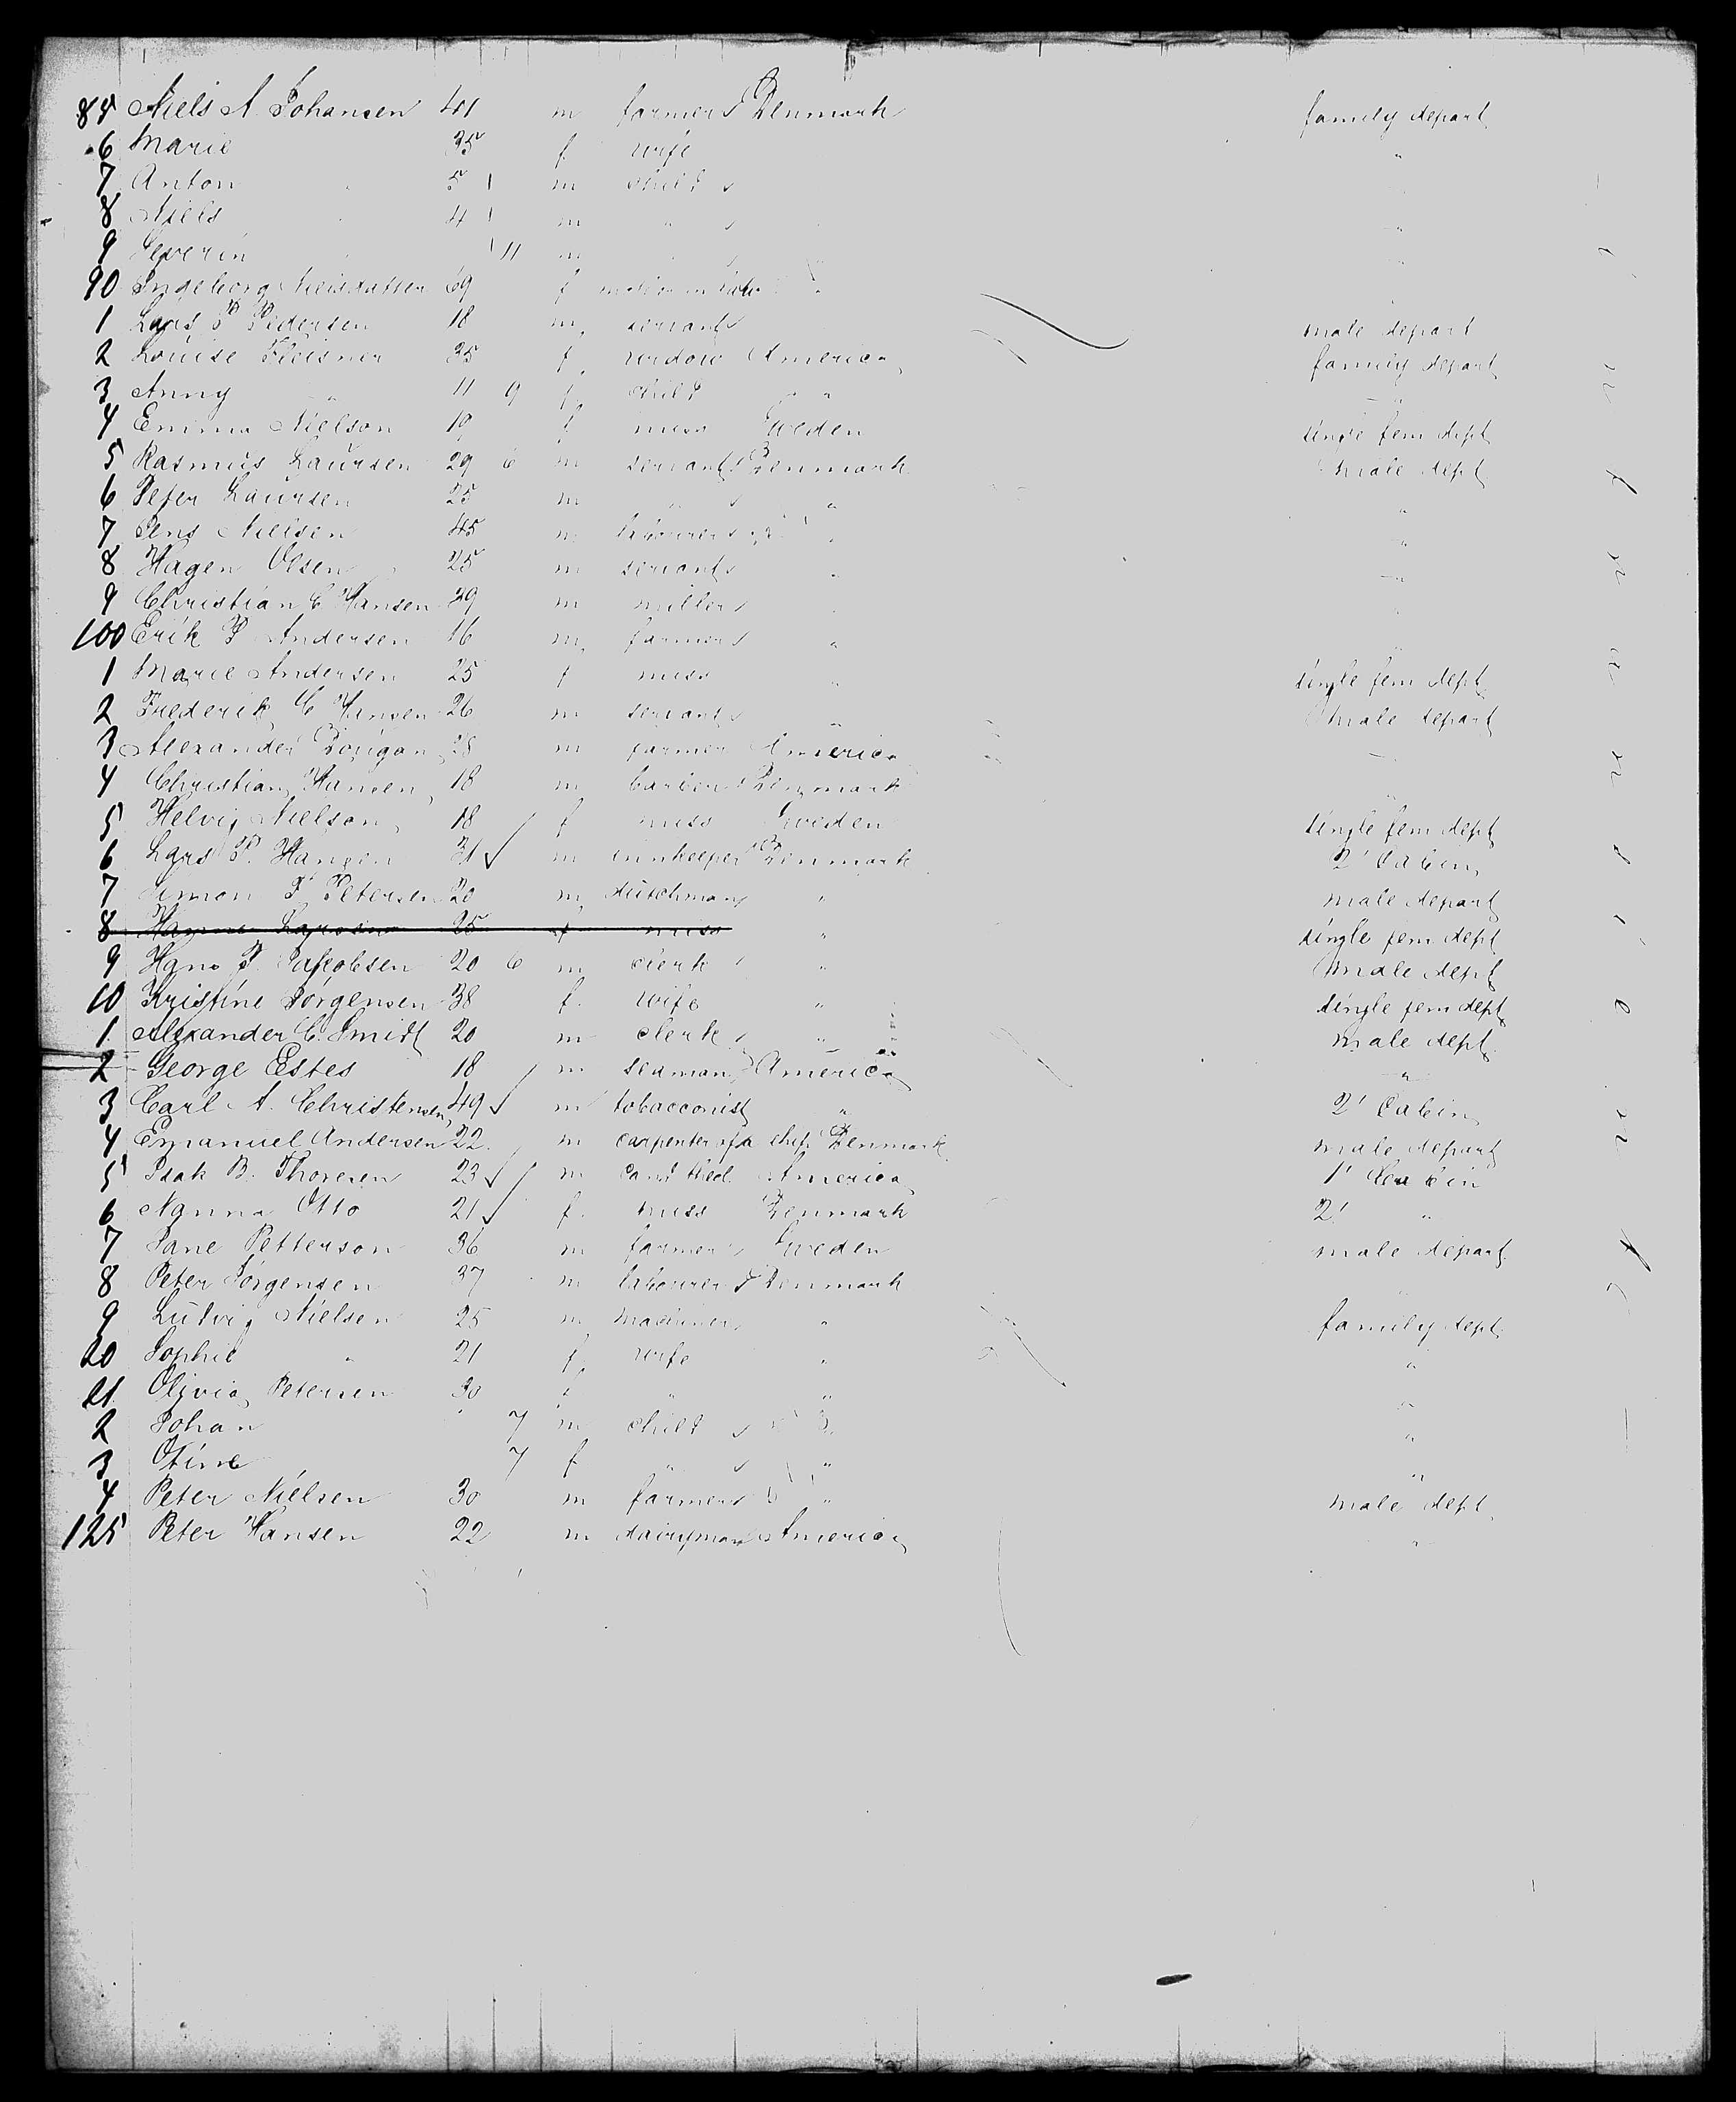 85 Niels A. Johansen 41 m farmer Denmark family depart
6 Marie 35 f wife "
7 Anton 5 m child
8 Niels 4 m " "
9 Severin 11 m "
90 Ingeborg 69 f mother in law "
1 Lars P Pedersen 18 m servant male depart
2 Louise Fleisner 35 f widow America family depart
3 Anny " 11 9 f child " "
4 Emma Nielson 19 f miss Sweden single fem dept
5 Rasmus Laursen 29 6 m servant Denmark male dept
6 Peter Laursen 25 m " " "
7 Jens Nielsen 45 m labourer " "
8 Hagen Olsen 25 m servant " "
9 Christian C Hansen 29 m miller
100 Erik P Andersen 16 m farmer " "
1 Marie Andersen 25 f miss " single fem dept
2 Frederik C Hansen 26 m servant " male depart
3 Alexander 28 m farmer America
4 Christian Hansen 18 m barber Denmark "
5 Helvig Nielson 18 f miss Sweden single fem dept
6 Lars P. Hansen 31 m innkeeper Denmark 2' Cabin
7 Simon P Petersen 20 m " male depart
8 25 f miss " single fem dept
9 Hans P. Jakobsen 20 6 m clerk " male dept
10 Kristine Jörgensen 38 f. wife " single fem dept
1 Alexander C. Smidt 20 m clerk " male dept
2 George Estes 18 m seaman America "
3 Carl A. Christensen 49 m tobacconist " 2' Cabin
4 Emanuel Andersen 22 m carpenter of a ship Denmark male depart
5 Isak B. Thoresen 23 m cand America 1' Cabin
6 Nanna Otto 21 f. miss Denmark 2' "
7 Jane Petterson 36 m farmer Sweden male depart
8 Peter Jörgensen 37 m labourer Denmark "
9 Ludvig Nielsen 25 m " family dept
20 Sophie " 21 f. wife " "
21 Olivia Petersen 30 f " " "
2 Johan 7 m child "
3 Otine 7 f " " "
4 Peter Nielsen 30 m farmer " male dept
125 Peter Hansen 22 m dairyman America "